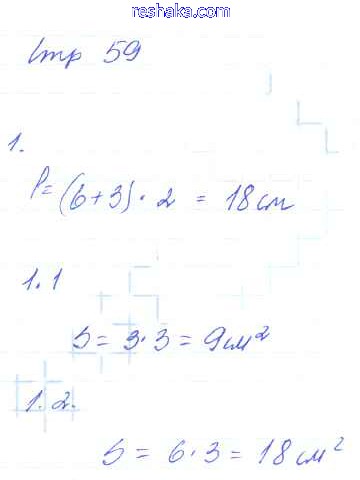 reshaka.com
Стр 59
1.
P = (6+3) · 2 = 18 см
1.1
S = 3 · 3 = 9 см²
1.2.
S = 6 · 3 = 18 см²